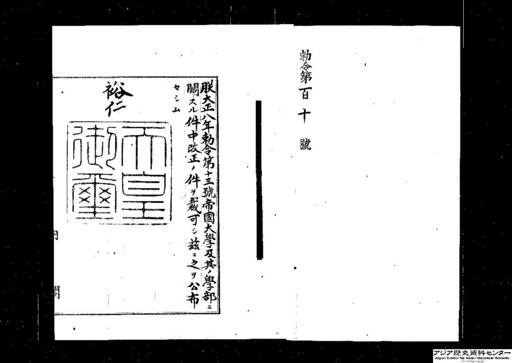 勅令第百十號
朕大正八年勅令第十三號帝國大學及其ノ學部ニ
關スル件中改正ノ件ヲ裁可シ茲ニ之ヲ公布
セシム
裕仁
天皇
御璽
内
閣
アジア歴史資料センター
Japan Center for Asian Historical Records